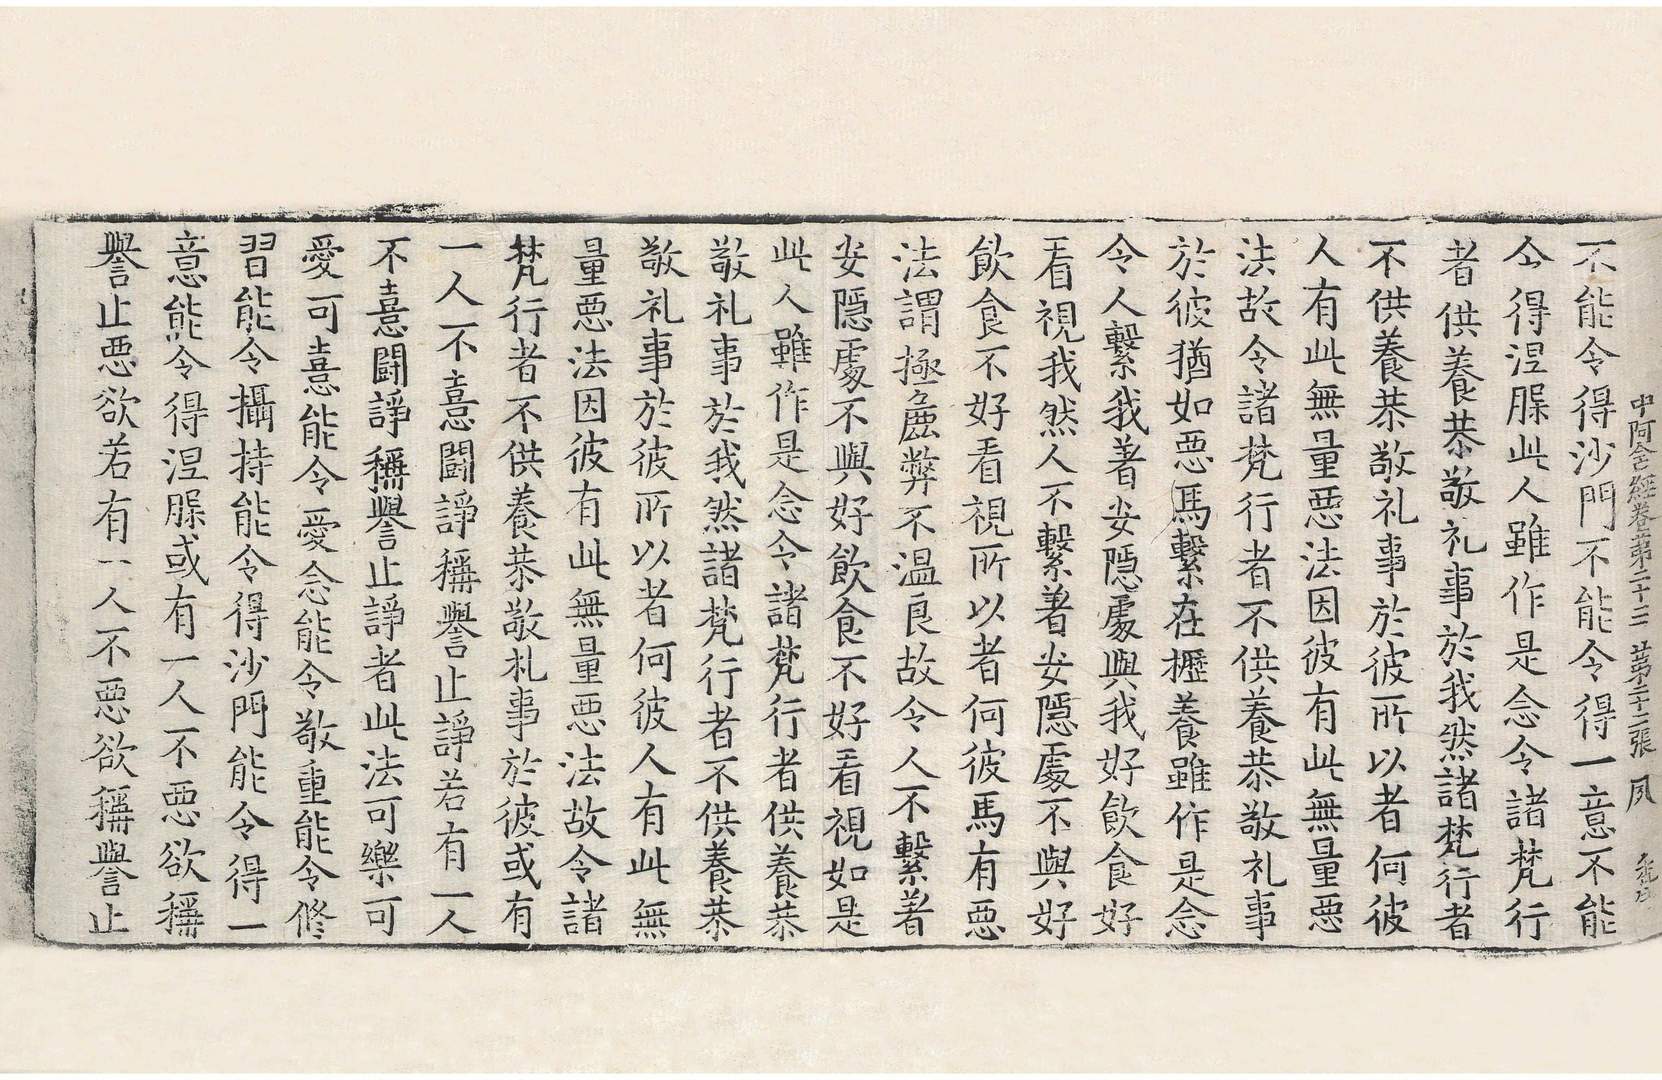 中阿含經卷第二十三 第二十二張 夙
不能令得沙門不能令得一意不能
令得涅槃此人雖作是念令諸梵行
者供養恭敬礼事於我然諸梵行者
不供養恭敬礼事於彼所以者何彼
人有此無量惡法因彼有此無量惡
法故令諸梵行者不供養恭敬礼事
於彼猶如惡馬繫在櫪養雖作是念
令人繫我著安隱處與我好飲食好
看視我然人不繫著安隱處不與好
飲食不好看視所以者何彼馬有惡
法謂極麁弊不温良故令人不繫著
安隱處不與好飲食不好看視如是
此人雖作是念令諸梵行者供養恭
敬礼事於我然諸梵行者不供養恭
敬礼事於彼所以者何彼人有此無
量惡法因彼有此無量惡法故令諸
梵行者不供養恭敬礼事於彼或有
一人不憙鬪諍稱譽止諍若有一人
不憙鬪諍稱譽止諍者此法可樂可
愛可憙能令愛念能令敬重能令修
習能令攝持能令得沙門能令得一
意能令得涅槃或有一人不惡欲稱
譽止惡欲若有一人不惡欲稱譽止